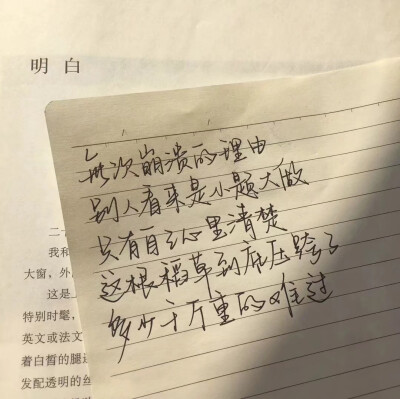 明白
每次崩溃的理由
别人看来是小题大做
只有自己心里清楚
这根稻草到底压跨了
多少千斤重的难过
二
我和
大窗，外
这是
特别时髦，
英文或法文
着白皙的腿
发配透明的丝